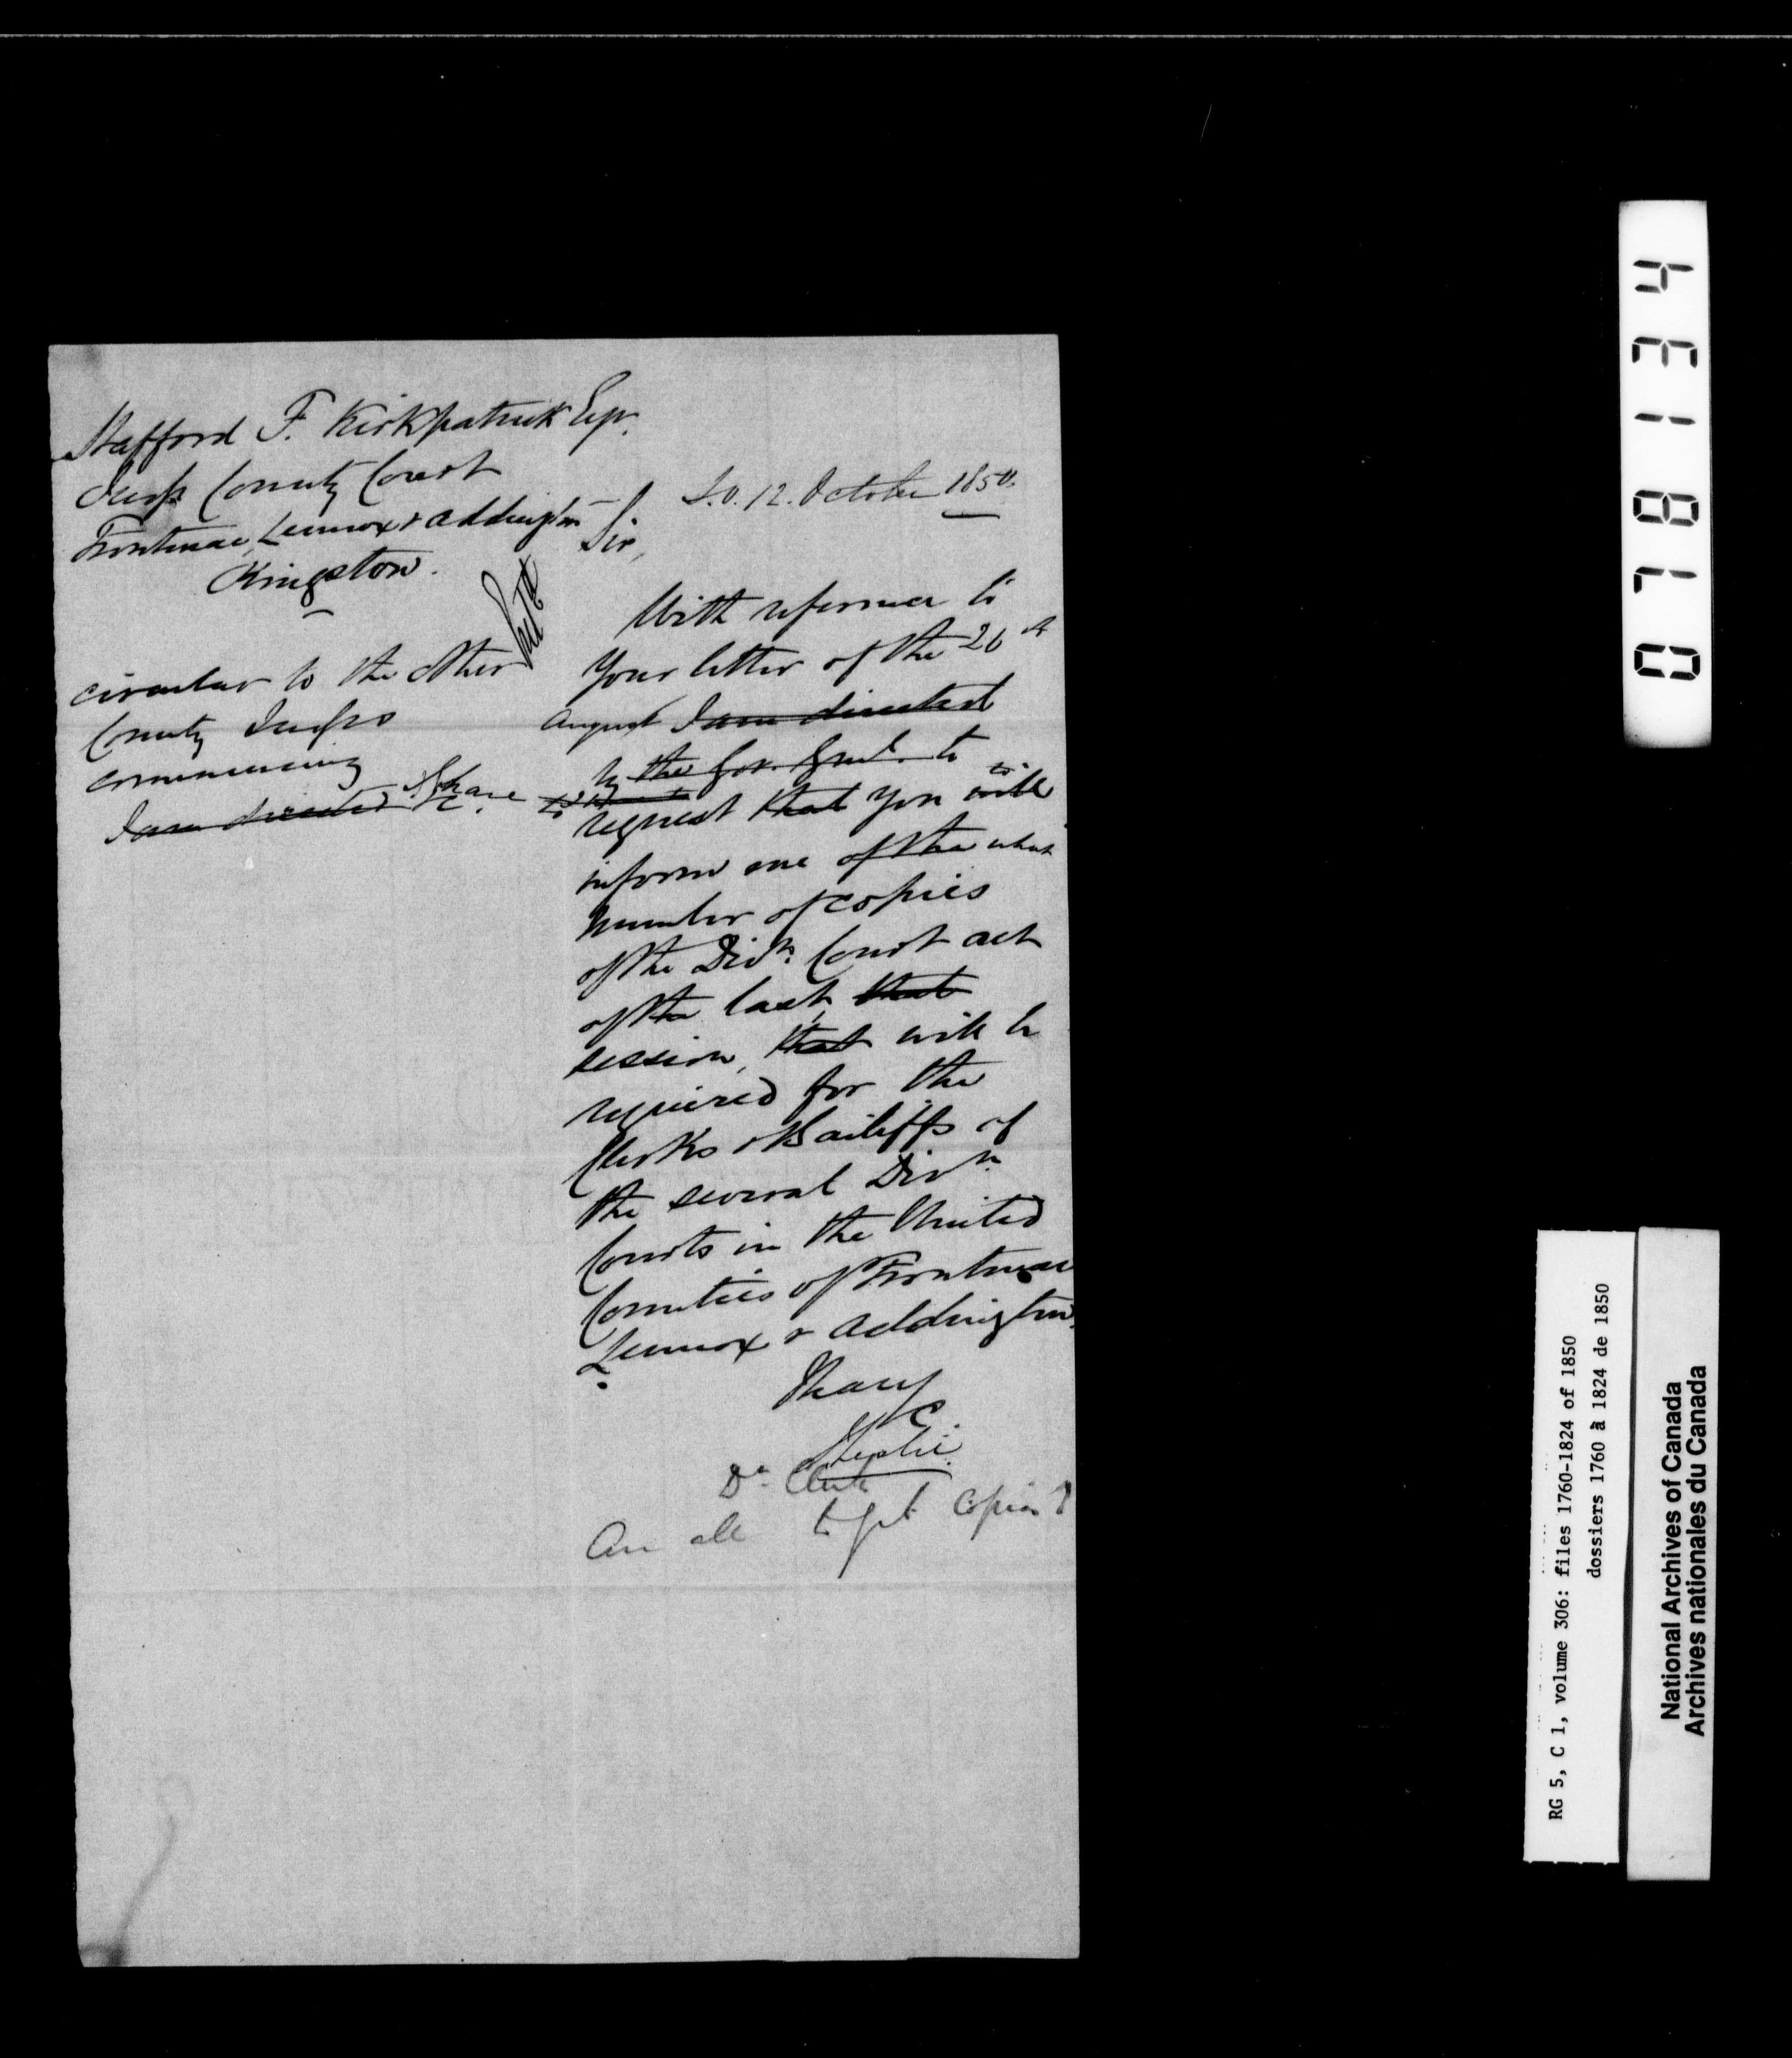 Stafford F. Kirkpatrick Esqr.
Judge County Court
Frontenac, Lennox & Addington
Kingston.
circular to the other
County Judges
commencing
I am directed I have &c.
S.O. 12. October 1850.
Sir,
With reference to
Your letter of the 26th
August I am directed
by the Gov. Genl. to
request that you will to
inform me of the what
number of copies
of the Divn. Court act
of the last, that
session, that will be
required for the
Clerks & Bailiffs of
the several Divn.
Courts in the United
Counties of Frontenac
Lennox & Addington.
I have
&c.
Leslie.
Dn. Clerk
to get copies
0781134
RG 5, C 1, volume 306: files 1760-1824 of 1850
dossiers 1760 à 1824 de 1850
National Archives of Canada
Archives nationales du Canada